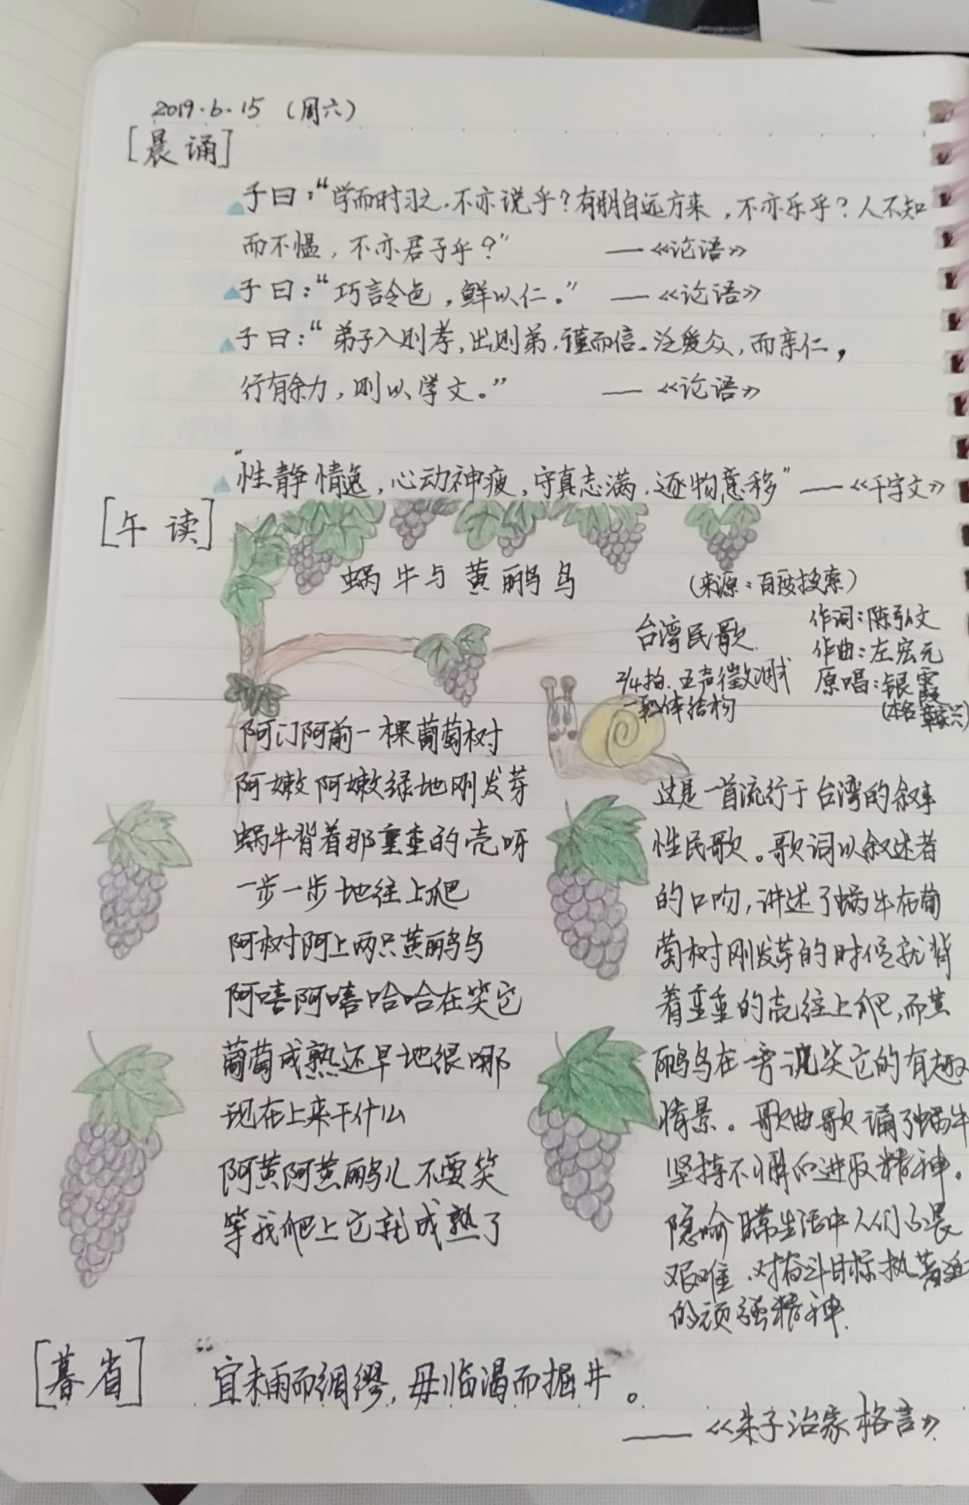 2019.6.15 (周六)
[晨诵]
子曰："学而时习之,不亦说乎?有朋自远方来,不亦乐乎?人不知
而不愠,不亦君子乎?" ——《论语》
子曰："巧言令色,鲜以仁。" ——《论语》
子曰："弟子入则孝,出则弟,谨而信。泛爱众,而亲仁,
行有余力,则以学文。" ——《论语》
"性静情逸,心动神疲,守真志满,逐物意移" ——《千字文》
[午读]
蜗牛与黄鹂鸟 (来源:百度搜索)
台湾民歌
2/4拍、五声徵调式
一段体结构
作词:陈弘文
作曲:左宏元
原唱:银霞
阿门阿前一棵葡萄树
阿嫩阿嫩绿地刚发芽
蜗牛背着那重重的壳呀
一步一步地往上爬
阿树阿上两只黄鹂鸟
阿嘻阿嘻哈哈在笑它
葡萄成熟还早地很哪
现在上来干什么
阿黄阿黄鹂儿不要笑
等我爬上它就成熟了
这是一首流行于台湾的叙事
性民歌。歌词以叙述者
的口吻,讲述了蜗牛在葡
萄树刚发芽的时候就背
着重重的壳往上爬,而黄
鹂鸟在一旁讥笑它的有趣
情景。歌曲歌诵了蜗牛
坚持不懈的进取精神。
隐喻日常生活中人们不畏
艰难、对奋斗目标执着追
的顽强精神.
[暮省] "宜未雨而绸缪,毋临渴而掘井。
——《朱子治家格言》